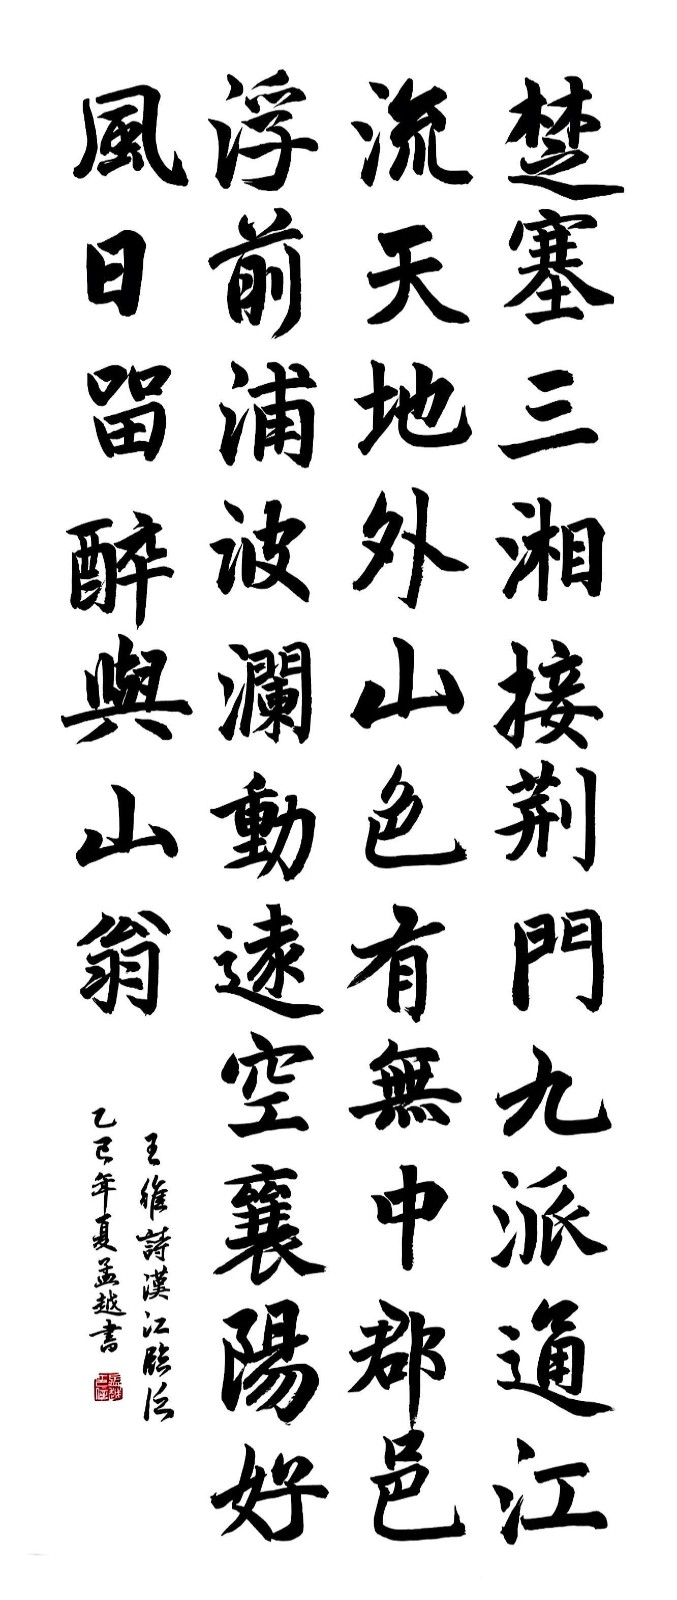 楚塞三湘接荆門九派通江
流天地外山色有無中郡邑
浮前浦波瀾動遠空襄陽好
風日留醉與山翁
王維詩漢江臨泛
乙巳年夏孟越書